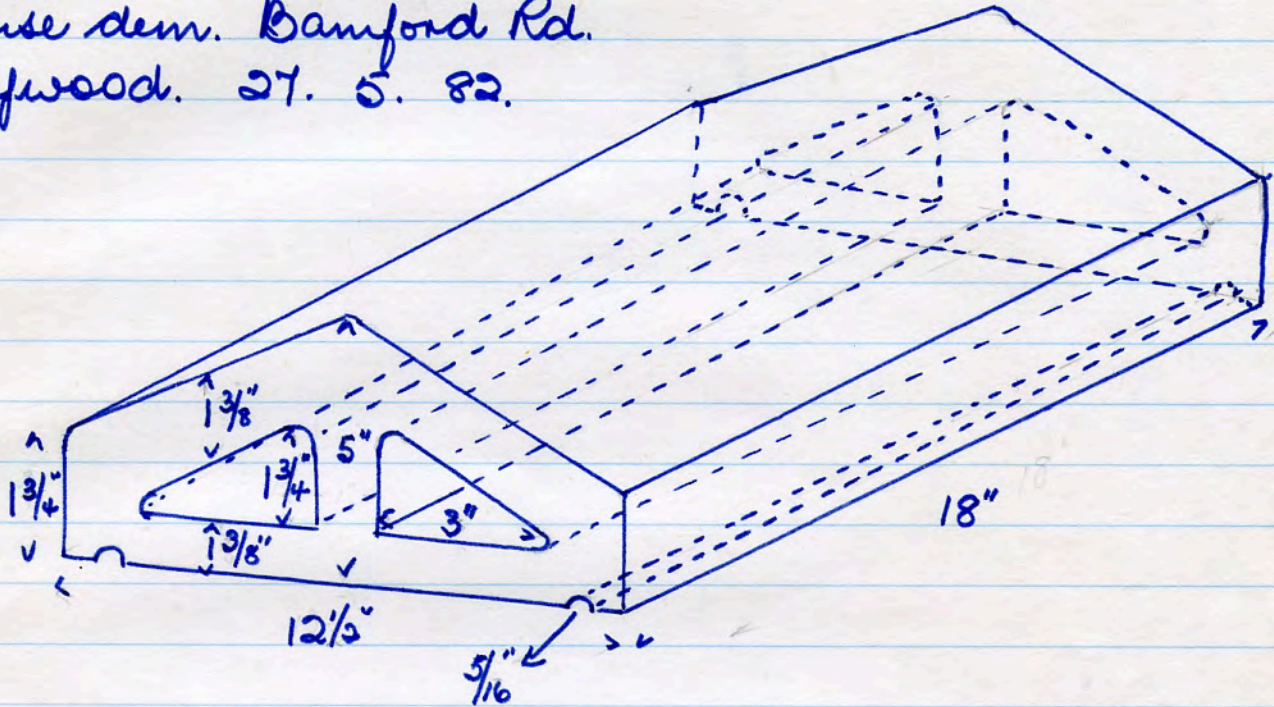 use dem. Bamford Rd.
fwood. 27. 5. 82.
1 3/8"
5"
1 3/4"
1 3/4"
3"
1 3/8"
18"
12 1/2"
5/16"